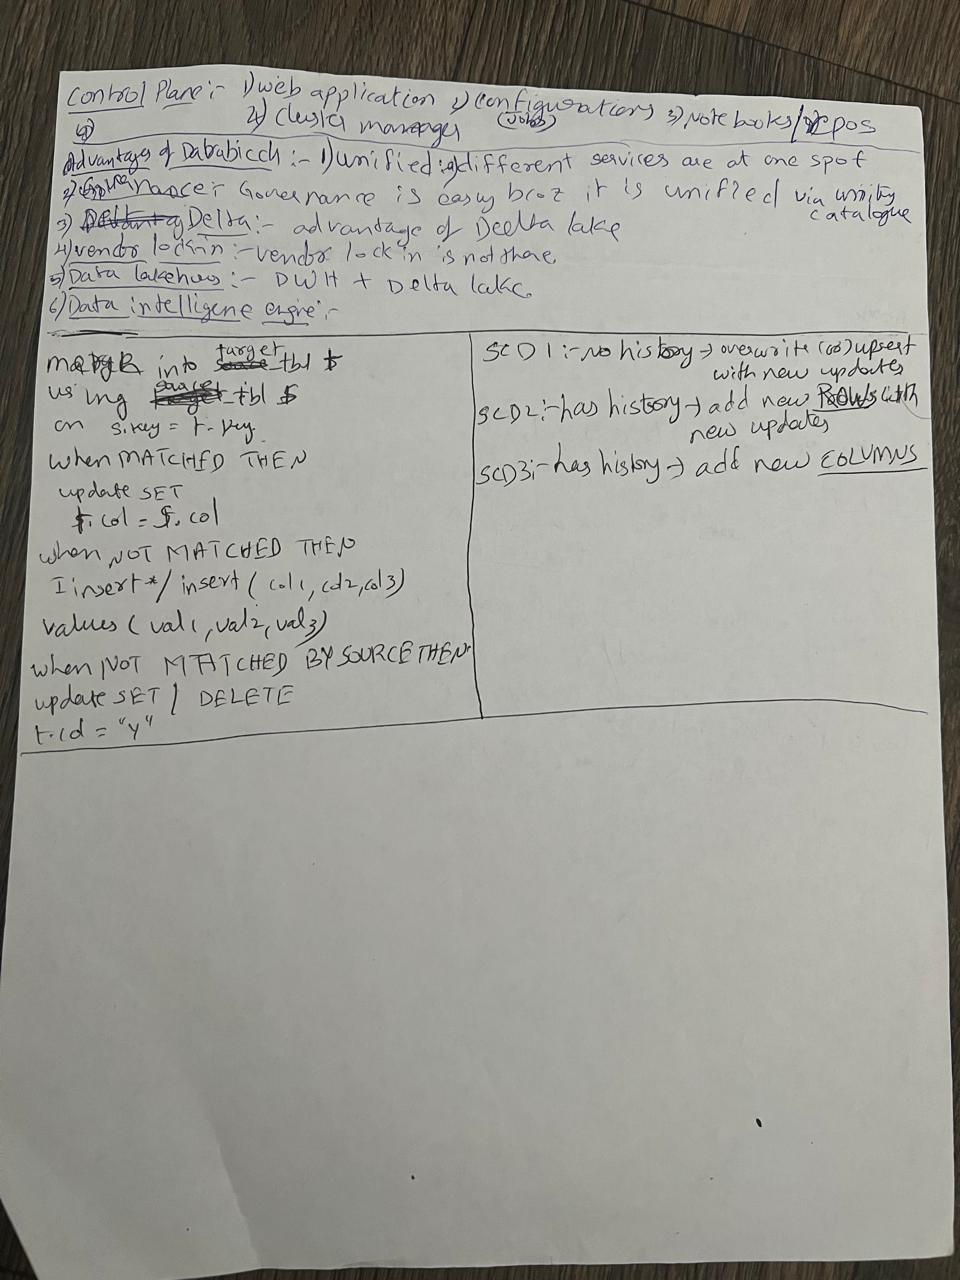 Control Plane:- 1) web application 2) Configurations 3) Notebooks/Repos
4) Cluster manager (Jobs)
Advantages of Dababicch :- 1) unified: different services are at one spot
2) Governance:- Governance is easy bcoz it is unified via unity catalogue
3) Delta:- advantage of Deelta lake
4) vendor lockin:- vendor lock in is not there
5) Data lakehous:- DWH + Delta lake.
6) Data intelligene engine:-
merge into target tbl t
using source tbl s
on s.key = t.key
when MATCHED THEN
update SET
t.col = s.col
when NOT MATCHED THEN
Iinsert*/ insert ( col1, col2, col3)
values ( val1, val2, val3)
when NOT MATCHED BY SOURCE THEN
update SET / DELETE
t.id = "y"
SCD1:- no history → overwrite (or) upsert
with new updates
SCD2:- has history → add new ROWS with
new updates
SCD3:- has history → add new COLUMNS